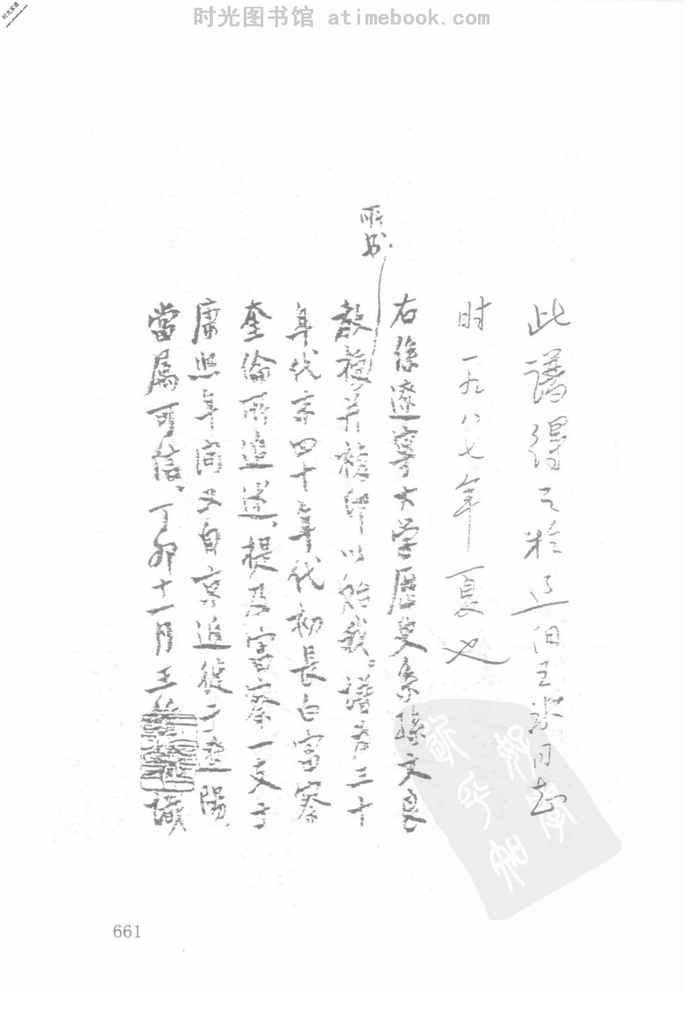 时光图书馆 atimebook.com
此谱得之于辽阳王 同志
时一九八七年夏也
右係遼寧大学歷史系孫文良
教授 并複印以貽我。譜為三十
年代末四十年代初長白富察
奎倫所追述，提及富察一支于
康熙年间又自京迁徙于遼陽，
當屬可信。丁卯十一月王 識
所
661